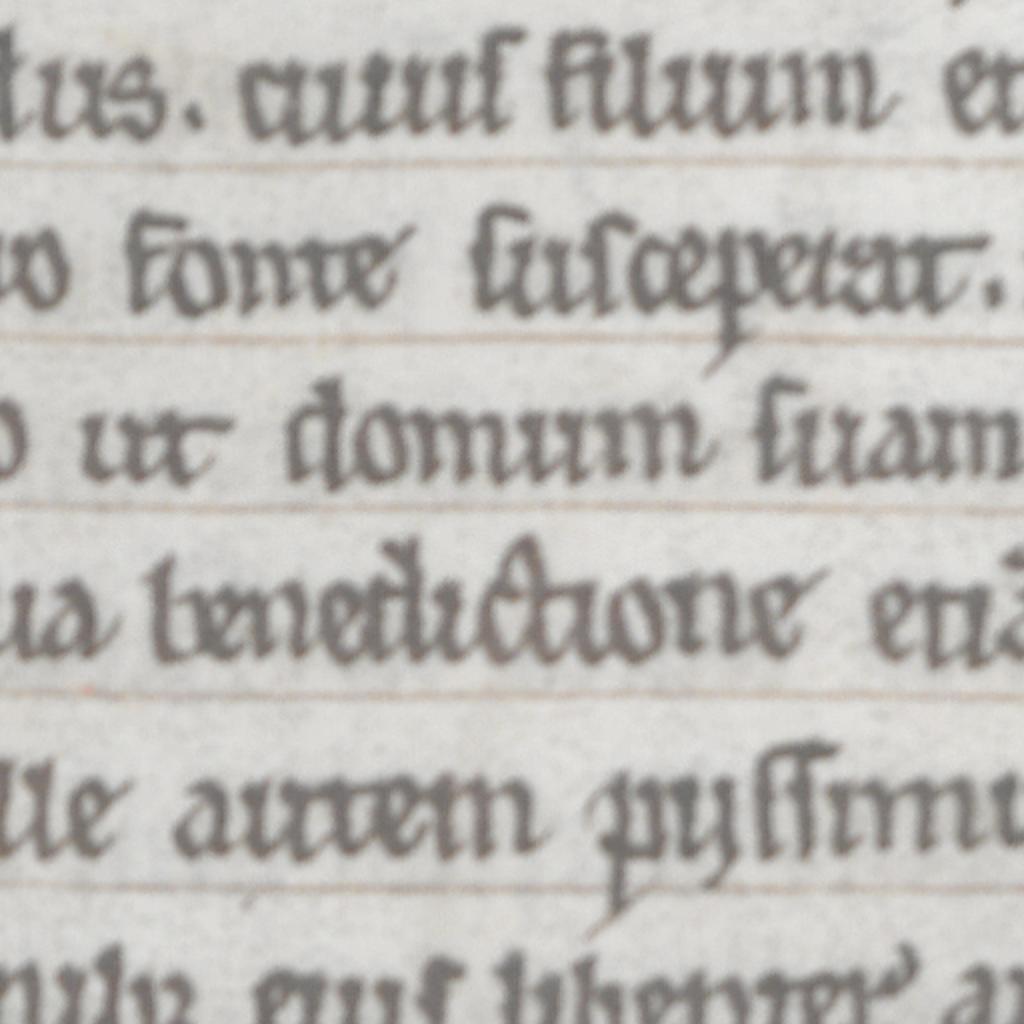 tus. cuius filium et
o fonte susceperat.
o ut domum suam
ua benedictione etiā
lle autem pyssimu
eius libenter